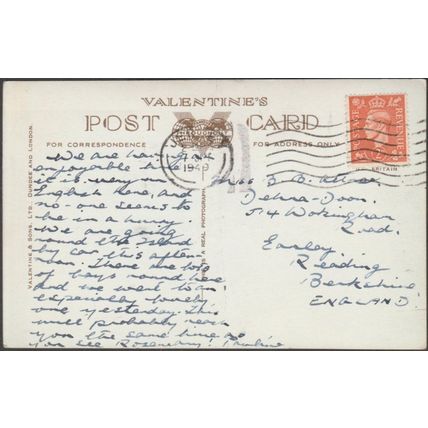 VALENTINE'S
POST CARD
FOR CORRESPONDENCE
FOR ADDRESS ONLY
VALENTINE & SONS, LTD., DUNDEE AND LONDON.
THIS IS A REAL PHOTOGRAPH
POSTAGE REVENUE
1949
We are having
enjoyable time
it is very un
English here, and
no-one seems to
be in a hurry.
We are going
round the island
by car this after-
noon. There are lots
of bays round here
and we went to an
especially lovely
one yesterday. This
will probably reach
you the same time as
you see Rosemary! Pauline
Miss B.
Dehra-Doon.
54 Wokingham
Road,
Earley
Reading
Berkshire
ENGLAND